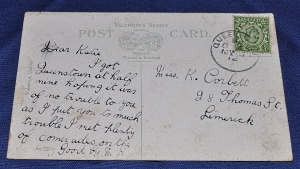 VALENTINE'S SERIES
POST CARD
QUEE
Dear Katie
I got
Queenstown at half
nine hoping it was
of no trouble to you
as I put you to much
trouble I met plenty
of comerades on the
Good by
Miss. K. Corbett
98 Thomas St.
Limerick